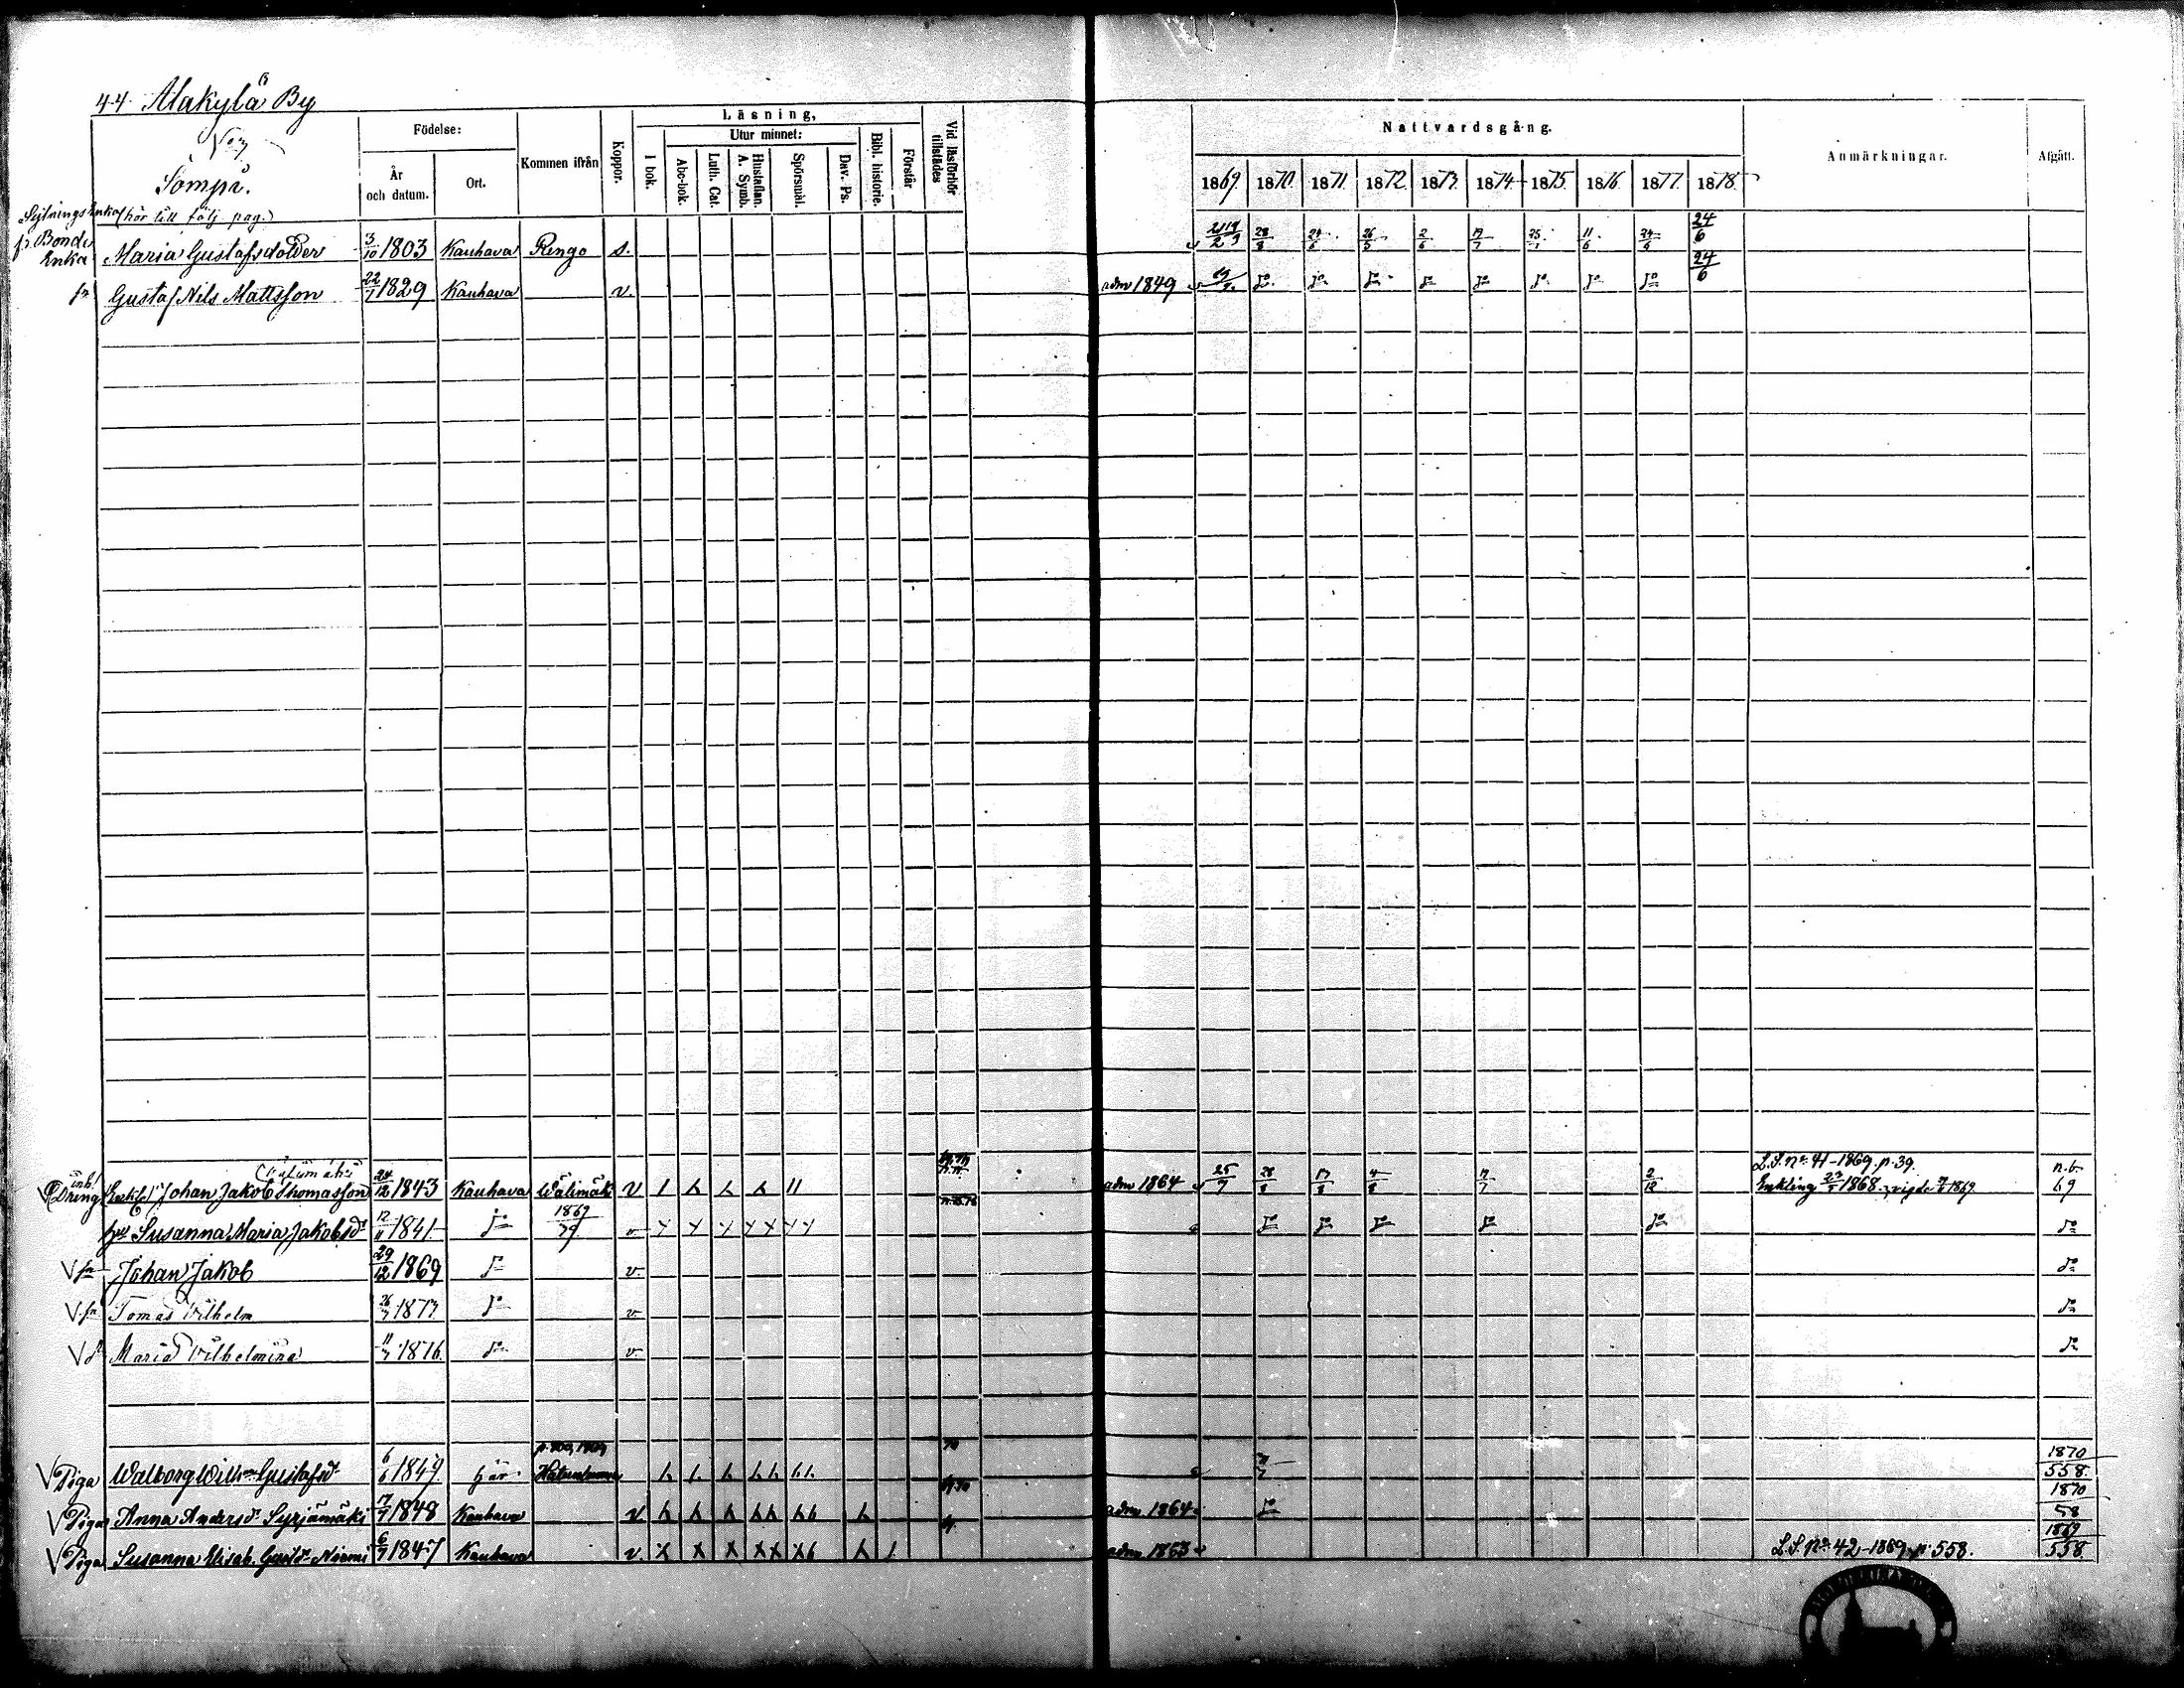 44. Alakylä By
N:o 7
Sompi.
(hör till följ. pag.)
Födelse:
År och datum.
Ort.
Kommen ifrån
Koppor.
Läsning,
I bok.
Utur minnet:
Abc-bok.
Luth. Cat.
Hustaflan. A. Symb.
Spörsmål.
Dav. Ps.
Bibl. historie.
Förstår
Vid läsförhör tillstädes
Nattvardsgång.
1869. 1870. 1871. 1872. 1873. 1874. 1875. 1876. 1877. 1878.
Anmärkningar.
Afgått.
Sytnings Enka
f.d. Bonde Enka Maria Gustafsdotter 3/10 1803 Kauhava Rengo s. 28/8 24/6 26/5 2/6 19/7 25 11/6 24/6 24/6
sn Gustaf Nils Mattsson 22/7 1829 Kauhava v. adm 1849 do do do do do do do do 24/6
Wälimäki
inh. Dräng Enkl. Johan Jakob Thomasson 24/12 1843 Kauhava Wälimäki v adm 1864 25/9 28/8 4/8 2/12
L.S. no 41-1869. p. 39.
Enkling 1868. vigde 1869
n.b. 69
hu Susanna Maria Jakobsdr 12/11 1841 do 1869/39 v do do do do do do
V sn Johan Jakob 29/12 1869 do v. do
V sn Tomas Vilhelm 26/7 1873 do v do
V dr Maria Vilhelmina 11/7 1876. do v. do
V Piga Walborg Wilh:a Gustafsdr 6/6 1849 här 70 1870/558.
V Piga Anna Andersdr Syrjämäki 17/7 1848 Kauhava v. 69.70 adm. 1864 do 1870/58
V Piga Susanna Elisab. Gustdr Niemi 6/7 1847 Kauhava v. 69. adm. 1863 L.S. no 42-1869. p. 558. 1869/558.